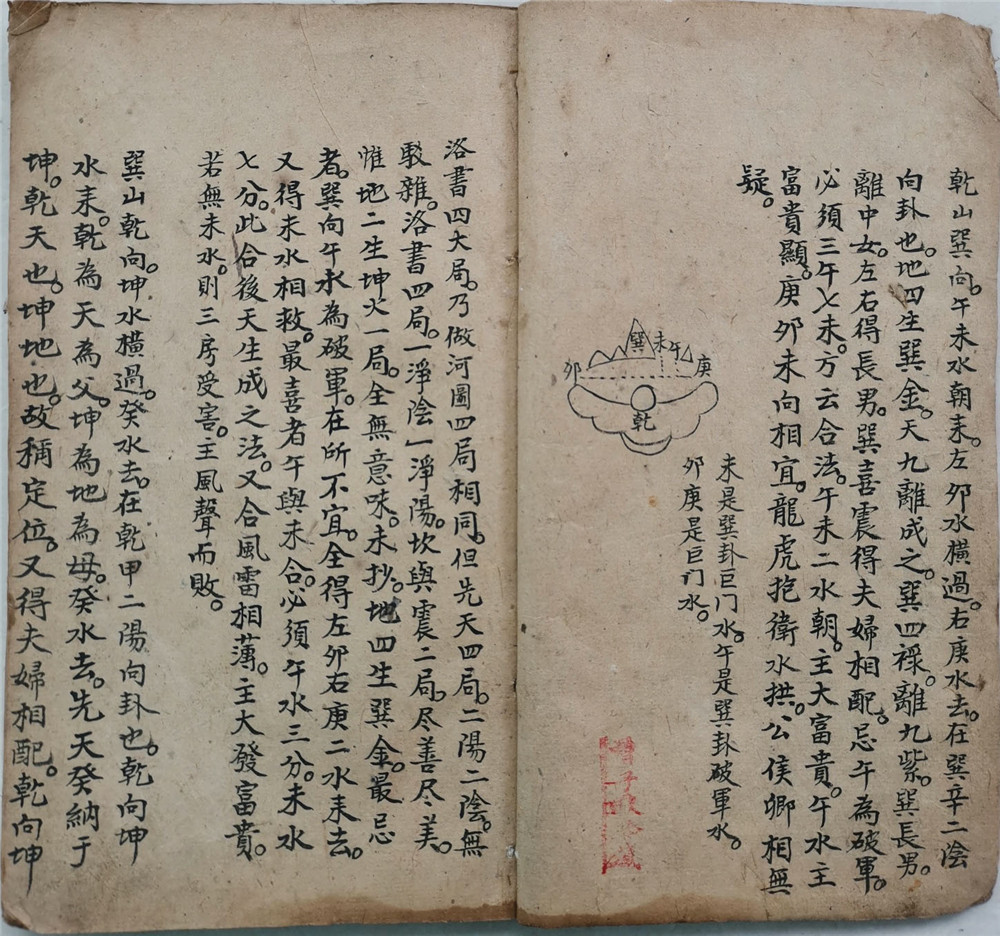 乾山巽向。午未水朝来。左夘水橫過。右庚水去。在巽辛二陰
向卦也。地四生巽金。天九離成之。巽四禄。離九紫。巽長男。
離中女。左右得長男。巽喜震得夫婦相配。忌午為破軍。
必須三午七未。方云合法。午未二水朝。主大富貴。午水主
富貴顯。庚夘未向相宜。龍虎抱衛水拱。公侯卿相無
疑。
巽未午
夘
庚
乾
未是巽卦巨门水。午是巽卦破軍水。
夘庚是巨门水。
洛書四大局。乃做河圖四局相同。但先天四局。二陽二陰。無
駁雜。洛書四局。一淨陰一淨陽。坎與震二局。尽善尽美。
惟地二生坤火一局。全無意味。未抄。地四生巽金。最忌
者。巽向午水為破軍。在所不宜。全得左夘右庚二水来去。
又得未水相救。最喜者午與未合。必須午水三分。未水
七分。此合後天生成之法。又合風雷相薄。主大發富貴。
若無未水。則三房受害。主風聲而敗。
巽山乾向。坤水橫過。癸水去。在乾甲二陽向卦也。乾向坤
水来。乾為天為父。坤為地為母。癸水去。先天癸納于
坤。乾天也。坤地也。故稱定位。又得夫婦相配。乾向坤